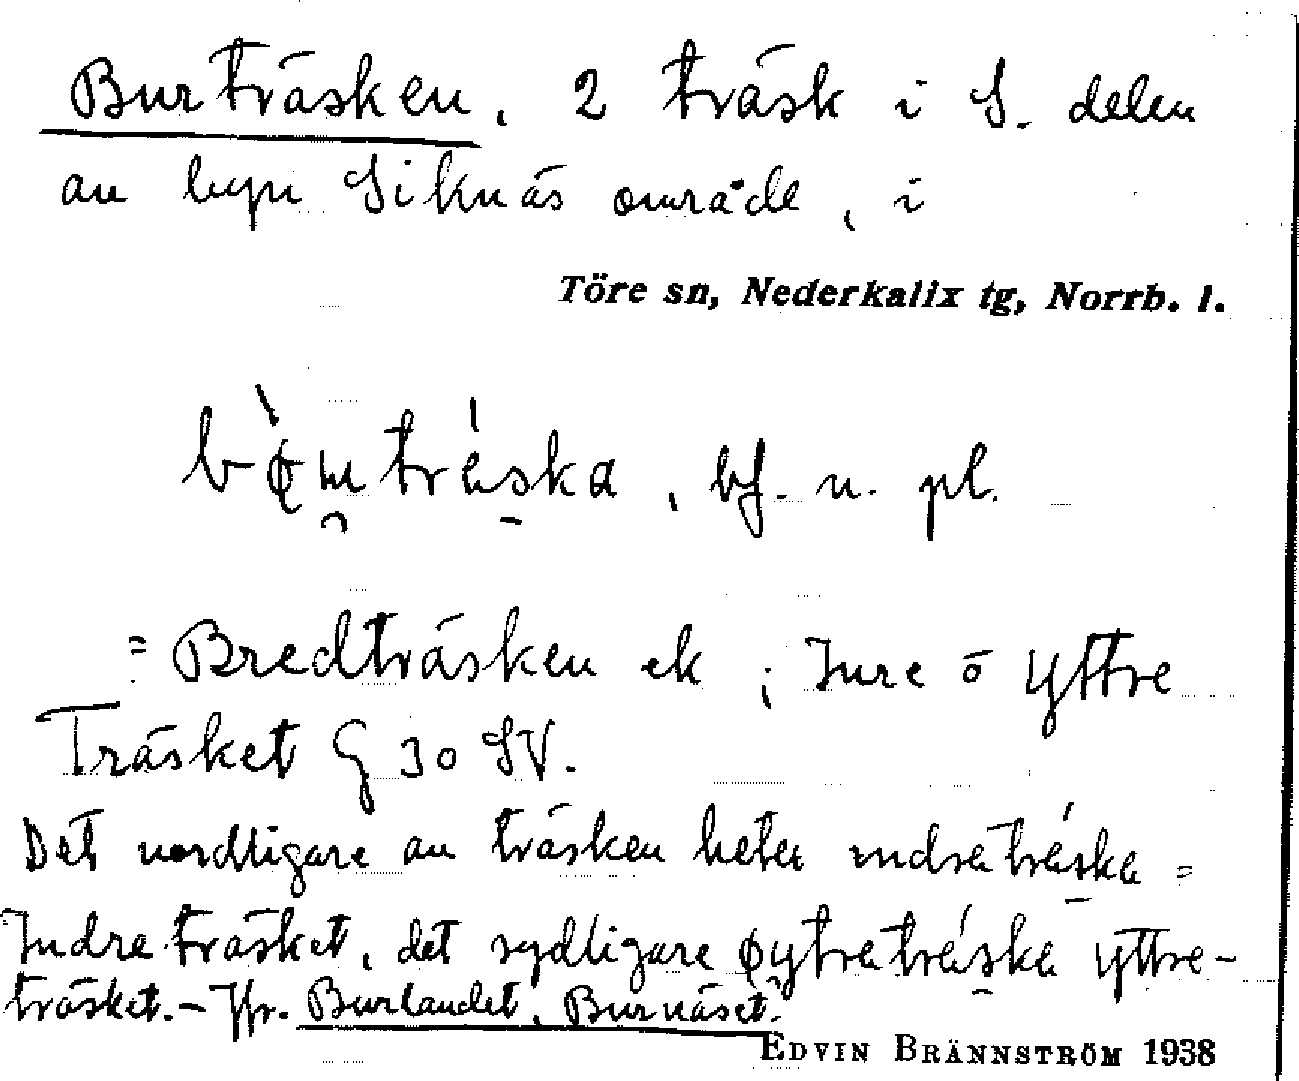 Burträsken, 2 träsk i S. delen
av byn Siknäs område, i
Töre sn, Nederkalix tg, Norrb. l.
träska, bf. n. pl.
= Bredträsken ek; Inre o Yttre
Träsket G 30 SV.
Det nordligare av träsken heter indreträska =
Indreträsket, det sydligare øytreträska yttre-
träsket. – Jfr. Burlandet, Burnäset.
EDVIN BRÄNNSTRÖM 1938